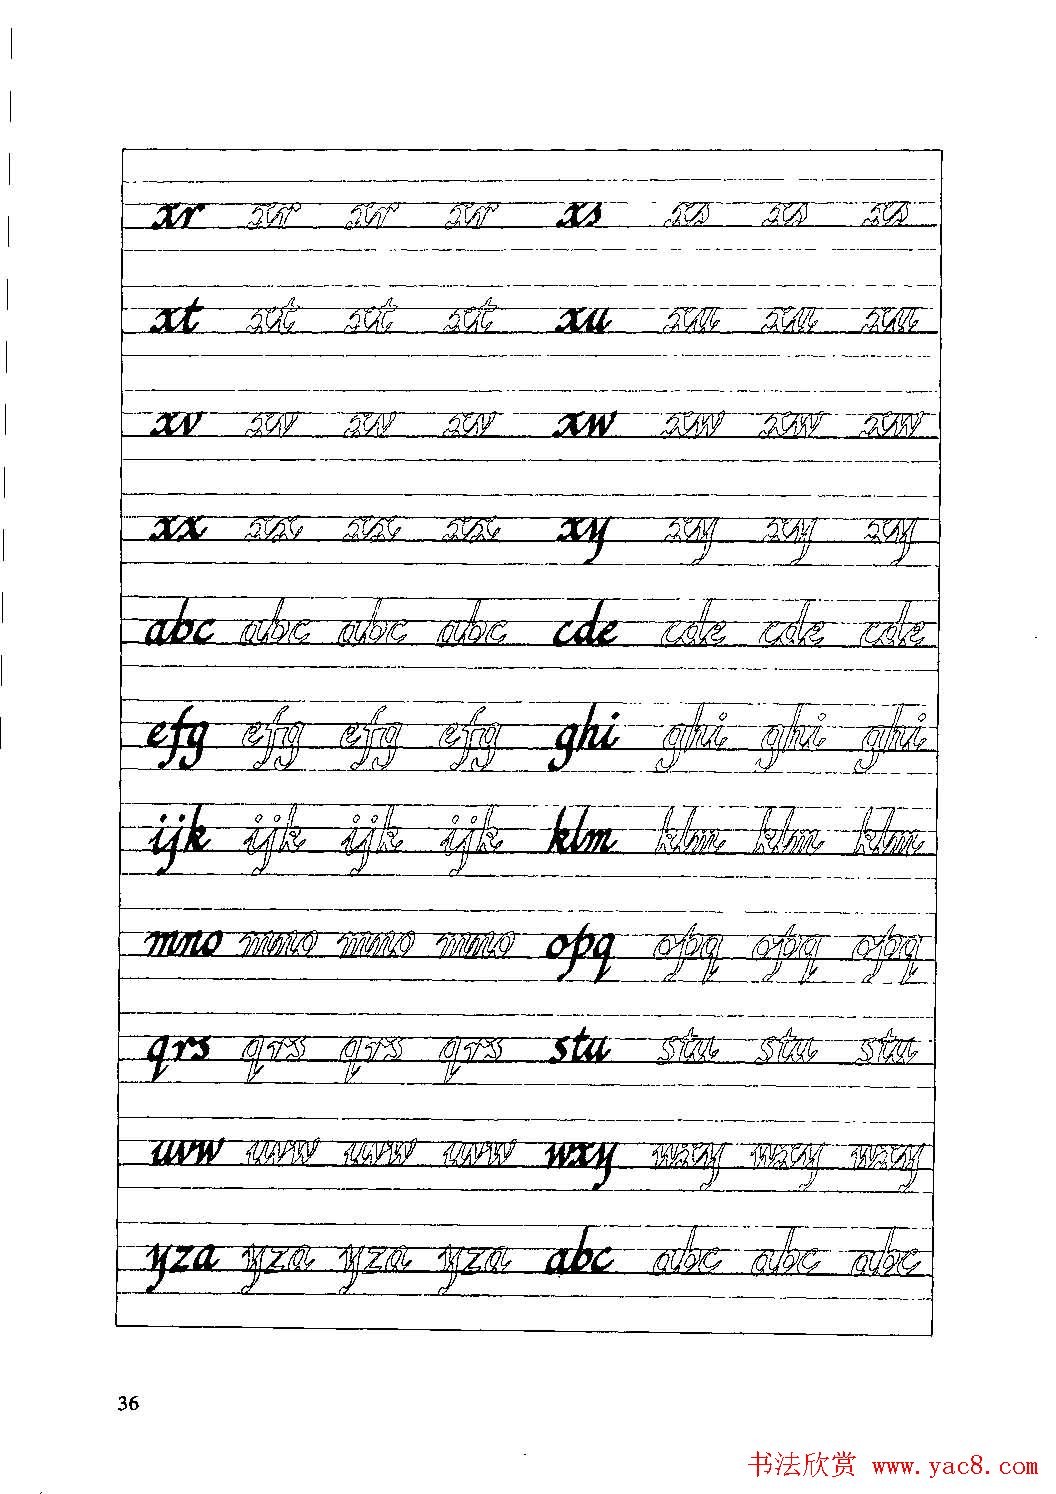 xr xr xr xr xs xs xs xs
xt xt xt xt xu xu xu xu
xv xv xv xv xw xw xw xw
xx xx xx xx xy xy xy xy
abc abc abc abc cde cde cde cde
efg efg efg efg ghi ghi ghi ghi
ijk ijk ijk ijk klm klm klm klm
mno mno mno mno opq opq opq opq
qrs qrs qrs qrs stu stu stu stu
uvw uvw uvw uvw wxy wxy wxy wxy
yza yza yza yza abc abc abc abc
36
书法欣赏 www.yac8.com